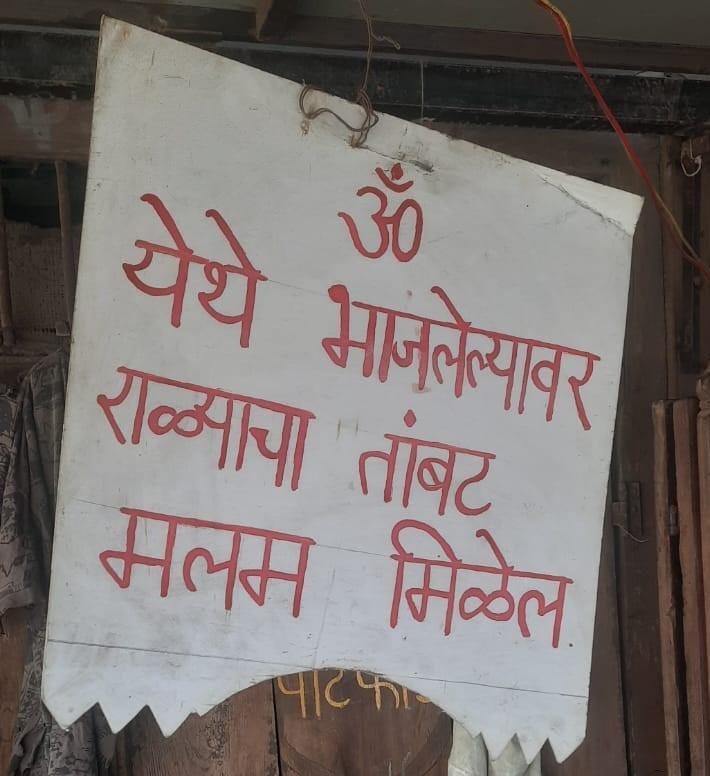 ॐ
येथे भाजलेल्यावर
राळ्याचा तांबट
मलम मिळेल